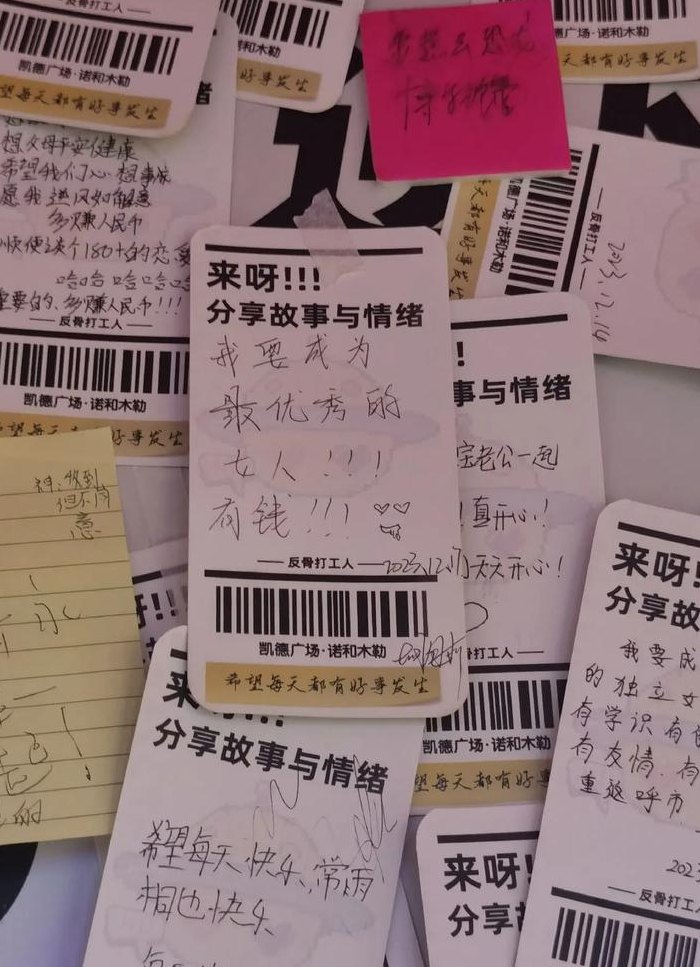 反骨打工人
凯德广场·诺和木勒
望每天都有好事发生
想父母平安健康
希望我们心想事成
愿我逆风如解意
多赚人民币
顺便谈个180+的恋爱
哈哈哈哈哈哈
重要的，多赚人民币!!!
—— 反骨打工人 ——
凯德广场·诺和木勒
希望每天都有好事发生
凯德广场·诺和木勒
—— 反骨打工人 ——
2023.12.14
来呀!!!
分享故事与情绪
我要成为
最优秀的
女人!!!
有钱!!!
—— 反骨打工人 ——
2023.12.17
凯德广场·诺和木勒
希望每天都有好事发生
!
事与情绪
宝老公一起
!真开心!
天天开心!
骨打工人 ——
凯德广场·诺和木勒
望每天都有好事发生
收到
但不同
意
来呀!!!
分享故事与情绪
希望每天快乐，常雨
桐也快乐
来呀!!
分享故
我要成
的独立女
有学识有
有友情 有
重返呼市
2023
—— 反骨打工
来呀!
分享